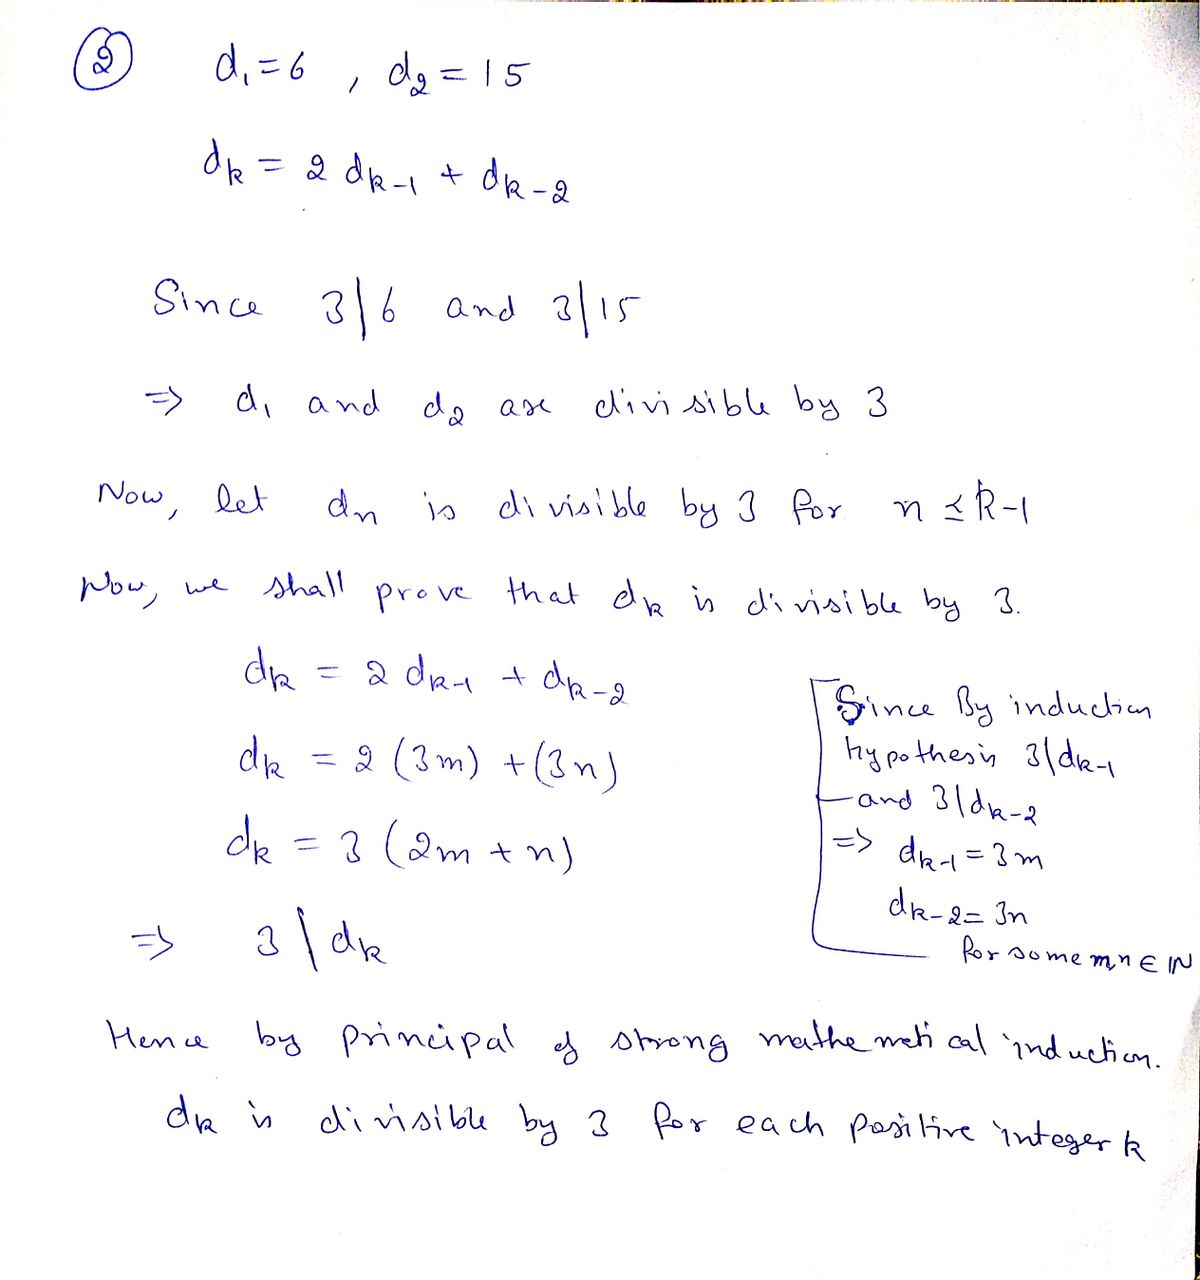 2 d₁ = 6 , d₂ = 15
dₖ = 2 dₖ₋₁ + dₖ₋₂
Since 3|6 and 3|15
⇒ d₁ and d₂ are divisible by 3
Now, let dₙ is divisible by 3 for n ≤ k-1
Now, we shall prove that dₖ is divisible by 3.
dₖ = 2 dₖ₋₁ + dₖ₋₂
dₖ = 2 (3m) + (3n)
dₖ = 3 (2m + n)
⇒ 3 | dₖ
Since By induction
hypothesis 3|dₖ₋₁
and 3|dₖ₋₂
⇒ dₖ₋₁ = 3m
dₖ₋₂ = 3n
for some m,n ∈ ℕ
Hence by principal of strong mathemetical induction.
dₖ is divisible by 3 for each positive integer k